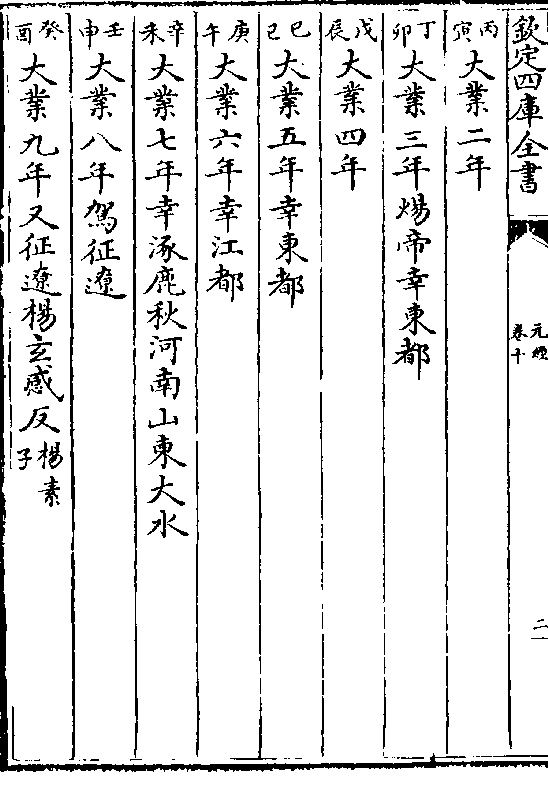 欽定四庫全書
元經
卷十
二
丙寅大業二年
丁卯大業三年煬帝幸東都
戊辰大業四年
己巳大業五年幸東都
庚午大業六年幸江都
辛未大業七年幸涿鹿秋河南山東大水
壬申大業八年駕征遼
癸酉大業九年又征遼楊玄感反楊素子